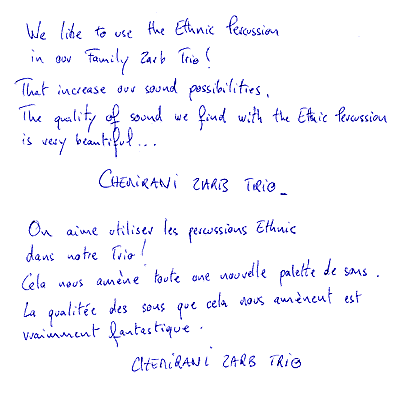 We like to use the Ethnic Percussion
in our Family Zarb Trio!
That increase our sound possibilities.
The quality of sound we find with the Ethnic Percussion
is very beautiful...
CHEMIRANI ZARB TRIO_
On aime utiliser les percussions Ethnic
dans notre Trio!
Cela nous amène toute une nouvelle palette de sons.
La qualitée des sons que cela nous amènent est
vraimment fantastique.
CHEMIRANI ZARB TRIO